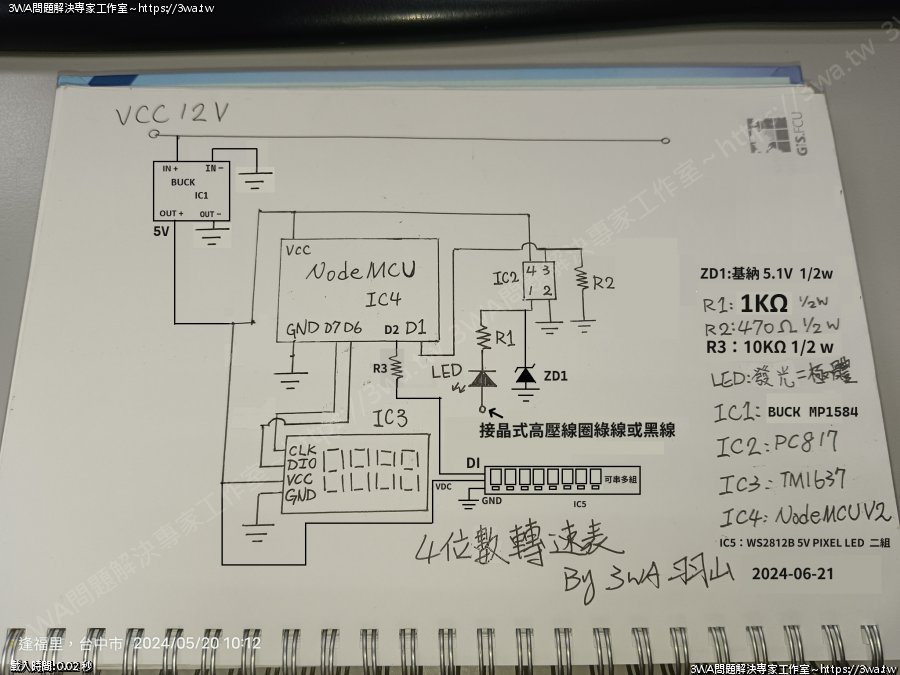 3WA問題解決專家工作室~https://3wa.tw
3WA問題解決專家工作室~https://3wa.tw
GIS.FCU
VCC 12V
IN+ IN-
BUCK
IC1
OUT+ OUT-
5V
VCC
NodeMCU
IC4
GND D7 D6 D2 D1
R3
IC2
4 3
1 2
R2
R1
LED
ZD1
接晶式高壓線圈綠線或黑線
IC3
CLK
DIO
VCC
GND
DI
VDC
GND
可串多組
IC5
ZD1:基納 5.1V 1/2w
R1: 1KΩ 1/2W
R2:470Ω 1/2W
R3:10KΩ 1/2 w
LED:發光二極體
IC1: BUCK MP1584
IC2:PC817
IC3: TM1637
IC4: NodeMCU V2
IC5:WS2812B 5V PIXEL LED 二組
4位數轉速表
By 3WA 羽山
2024-06-21
逢福里,台中市 2024/05/20 10:12
載入時間:0.02 秒
3WA問題解決專家工作室~https://3wa.tw